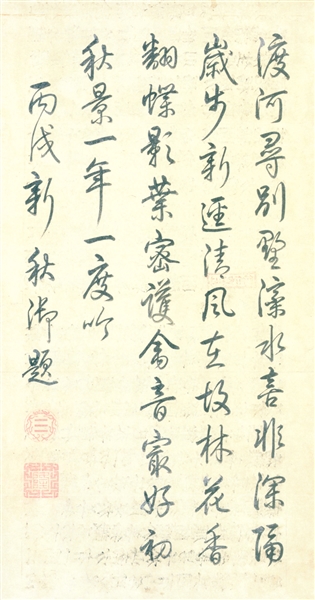 渡河尋別墅濠水喜非深隔
歲步新逕清風在故林花香
翻蝶影葉密護禽音最好初
秋景一年一度吟
丙戌新秋御題
三